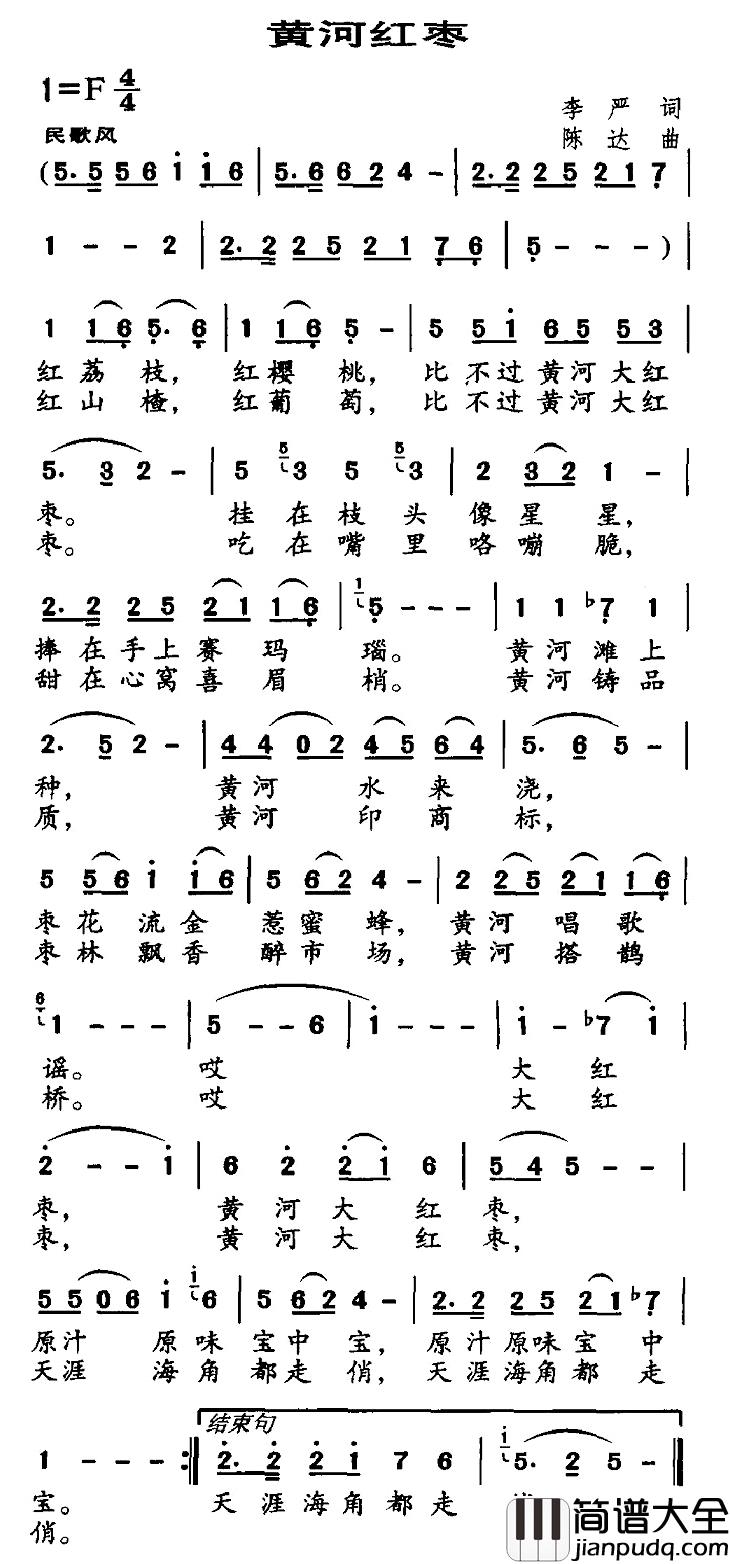 黄河红枣
1=F 4/4
李严词
民歌风
陈达曲
(5. 5 5 6 i i 6 | 5. 6 6 2 4 - | 2. 2 2 5 2 1 7 |
1 - - 2 | 2. 2 2 5 2 1 7 6 | 5 - - - ) |
1 1 6 5. 6 | 1 1 6 5 - | 5 5 i 6 5 5 3
红荔枝，红樱桃，比不过黄河大红
红山楂，红葡萄，比不过黄河大红
5. 3 2 - | 5 5 3 5 5 3 | 2 3 2 1 - |
枣。挂在枝头像星星，
枣。吃在嘴里咯嘣脆，
2. 2 2 5 2 1 1 6 | 1 5 - - - | 1 1 b7 1 |
捧在手上赛玛瑙。黄河滩上
甜在心窝喜眉梢。黄河铸品
2. 5 2 - | 4 4 0 2 4 5 6 4 | 5. 6 5 - |
种，黄河水来浇，
质，黄河印商标，
5 5 6 i i 6 | 5 6 2 4 - | 2 2 5 2 1 1 6 |
枣花流金惹蜜蜂，黄河唱歌
枣林飘香醉市场，黄河搭鹊
6 1 - - - | 5 - - 6 | i - - - | i - b7 i |
谣。哎大红
桥。哎大红
2 - - i | 6 2 2 i 6 | 5 4 5 - - |
枣，黄河大红枣，
枣，黄河大红枣，
5 5 0 6 i i 6 | 5 6 2 4 - | 2. 2 2 5 2 1 b7 |
原汁原味宝中宝，原汁原味宝中
天涯海角都走俏，天涯海角都走
结束句
1 - - - :| 2. 2 2 i 7 6 | i 5. 2 5 - |
宝。天涯海角都走
俏。
简谱大全
jianpudq.com